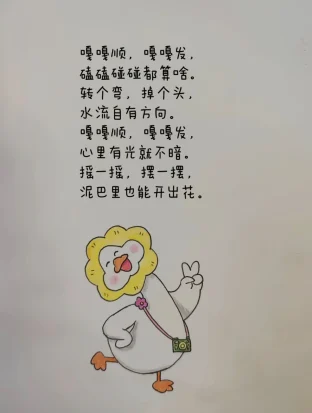 嘎嘎顺，嘎嘎发，
磕磕碰碰都算啥。
转个弯，掉个头，
水流自有方向。
嘎嘎顺，嘎嘎发，
心里有光就不暗。
摇一摇，摆一摆，
泥巴里也能开出花。